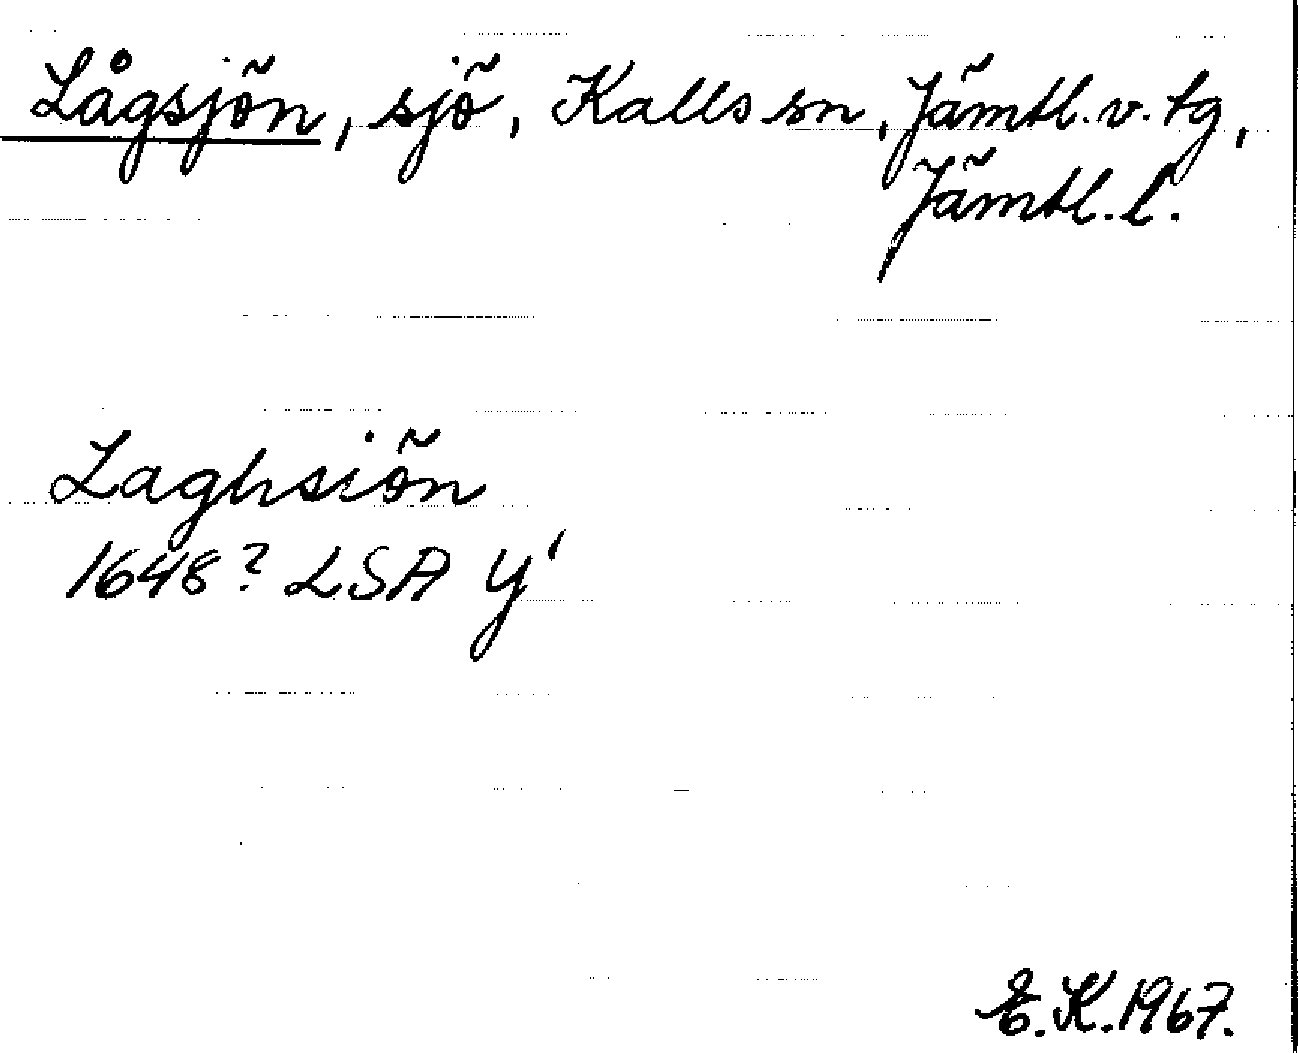 Lågsjön, sjö, Kalls sn, Jämtl. v. tg,
Jämtl. l.
Laghsiön
1648? LSA Y'
E. K. 1967.